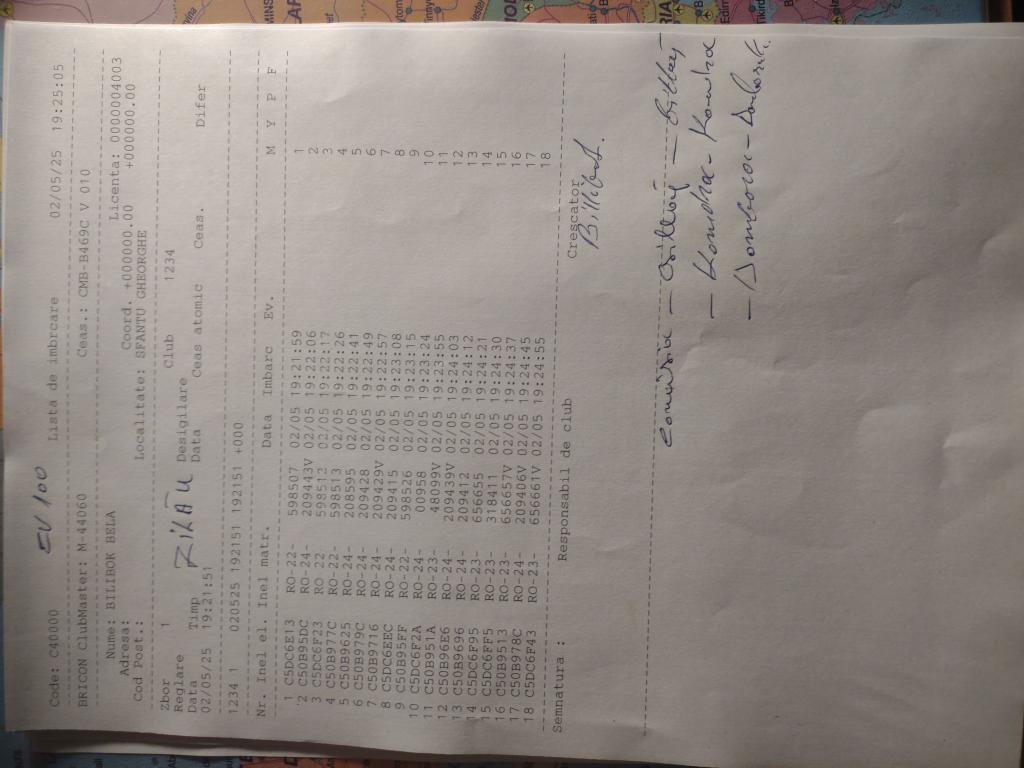 EV 100
Code: C40000 Lista de imbrcare 02/05/25 19:25:05
BRICON ClubMaster: M-44060 Ceas.: CMB-B469C V 010
Nume: BILIBOK BELA Licenta: 0000004003
Adresa: Coord. +000000.00 +000000.00
Cod Post.: Localitate: SFANTU GHEORGHE
Zbor 1 Club 1234
Reglare Desigilare
Data Timp Data Ceas atomic Ceas. Difer
02/05/25 19:21:51
1234 1 020525 192151 192151 +000
Nr. Inel el. Inel matr. Data Imbarc Ev. M Y P F
1 C5DC6E13 RO-22- 598507 02/05 19:21:59 1
2 C50B95DC RO-24- 209443V 02/05 19:22:06 2
3 C5DC6F23 RO 22 598512 02/05 19:22:17 3
4 C50B977C RO-22- 598513 02/05 19:22:26 4
5 C50B9625 RO-24- 208595 02/05 19:22:41 5
6 C50B979C RO-24- 209428 02/05 19:22:49 6
7 C50B9716 RO-24- 209429V 02/05 19:22:57 7
8 C5DC6EEC RO-24- 209415 02/05 19:23:08 8
9 C50B95FF RO-22- 598526 02/05 19:23:15 9
10 C5DC6F2A RO-24- 00958 02/05 19:23:24 10
11 C50B951A RO-23- 48099V 02/05 19:23:55 11
12 C50B96E6 RO-24- 209439V 02/05 19:24:03 12
13 C50B9696 RO-24- 209412 02/05 19:24:12 13
14 C5DC6F95 RO-23- 656655 02/05 19:24:21 14
15 C5DC6FF5 RO-23- 318411 02/05 19:24:30 15
16 C50B9513 RO-23- 656657V 02/05 19:24:37 16
17 C50B978C RO-24- 209406V 02/05 19:24:45 17
18 C5DC6F43 RO-23- 656661V 02/05 19:24:55 18
Semnatura : Responsabil de club Crescator